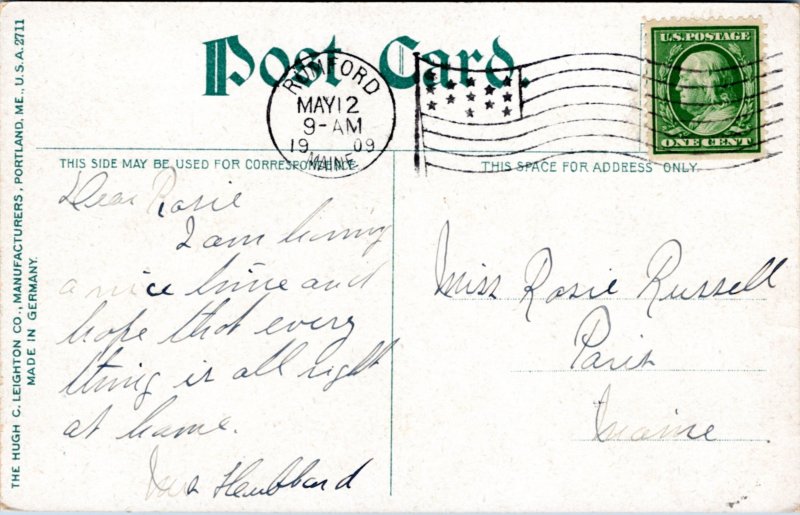 Post Card.
RUMFORD
MAY 12
9-AM
1909
MAINE
U.S. POSTAGE
ONE CENT
THIS SIDE MAY BE USED FOR CORRESPONDENCE
THIS SPACE FOR ADDRESS ONLY.
Dear Rosie
I am having
a nice time and
hope that every
thing is all right
at home.
Hubbard
Miss Rosie Russell
Paris
Maine
THE HUGH C. LEIGHTON CO., MANUFACTURERS, PORTLAND, ME., U.S.A. 2711
MADE IN GERMANY.